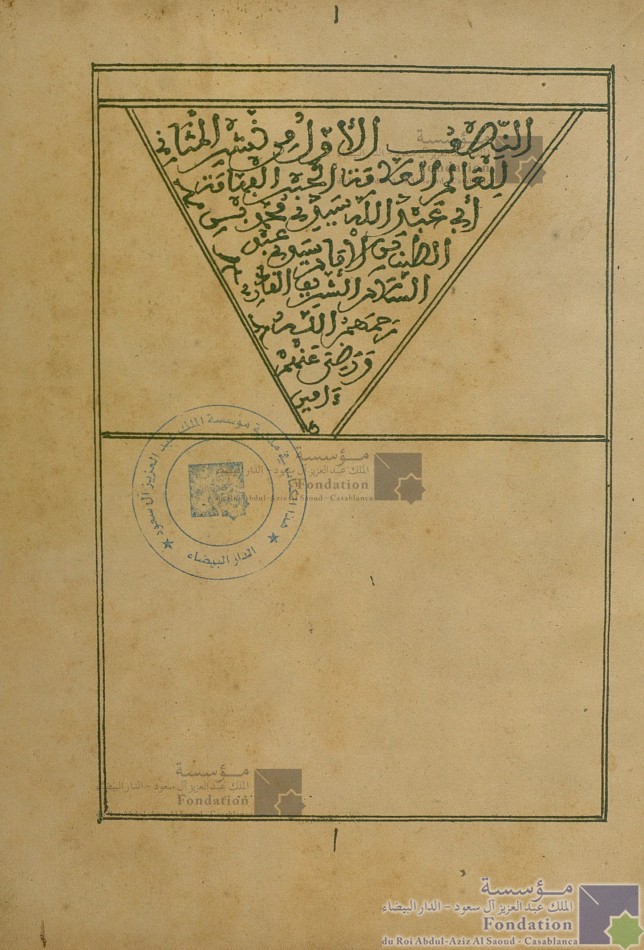 ١
النصف الأول من نشر المثاني
للعالم العلامة الحبر الفهامة
أبي عبد الله سيدي محمد بن
الطيب بن الإمام سيدي عبد
السلام الشريف القادري
رحمهم الله
ورضي عنهم
ءامين
هذا الكتاب في مؤسسة الملك عبد العزيز آل سعود
الدار البيضاء
مؤسسة
الملك عبد العزيز آل سعود - الدار البيضاء
Fondation
du Roi Abdul-Aziz Al Saoud - Casablanca
مؤسسة
الملك عبد العزيز آل سعود - الدار البيضاء
Fondation
١
مؤسسة
الملك عبد العزيز آل سعود - الدار البيضاء
Fondation
du Roi Abdul-Aziz Al Saoud - Casablanca